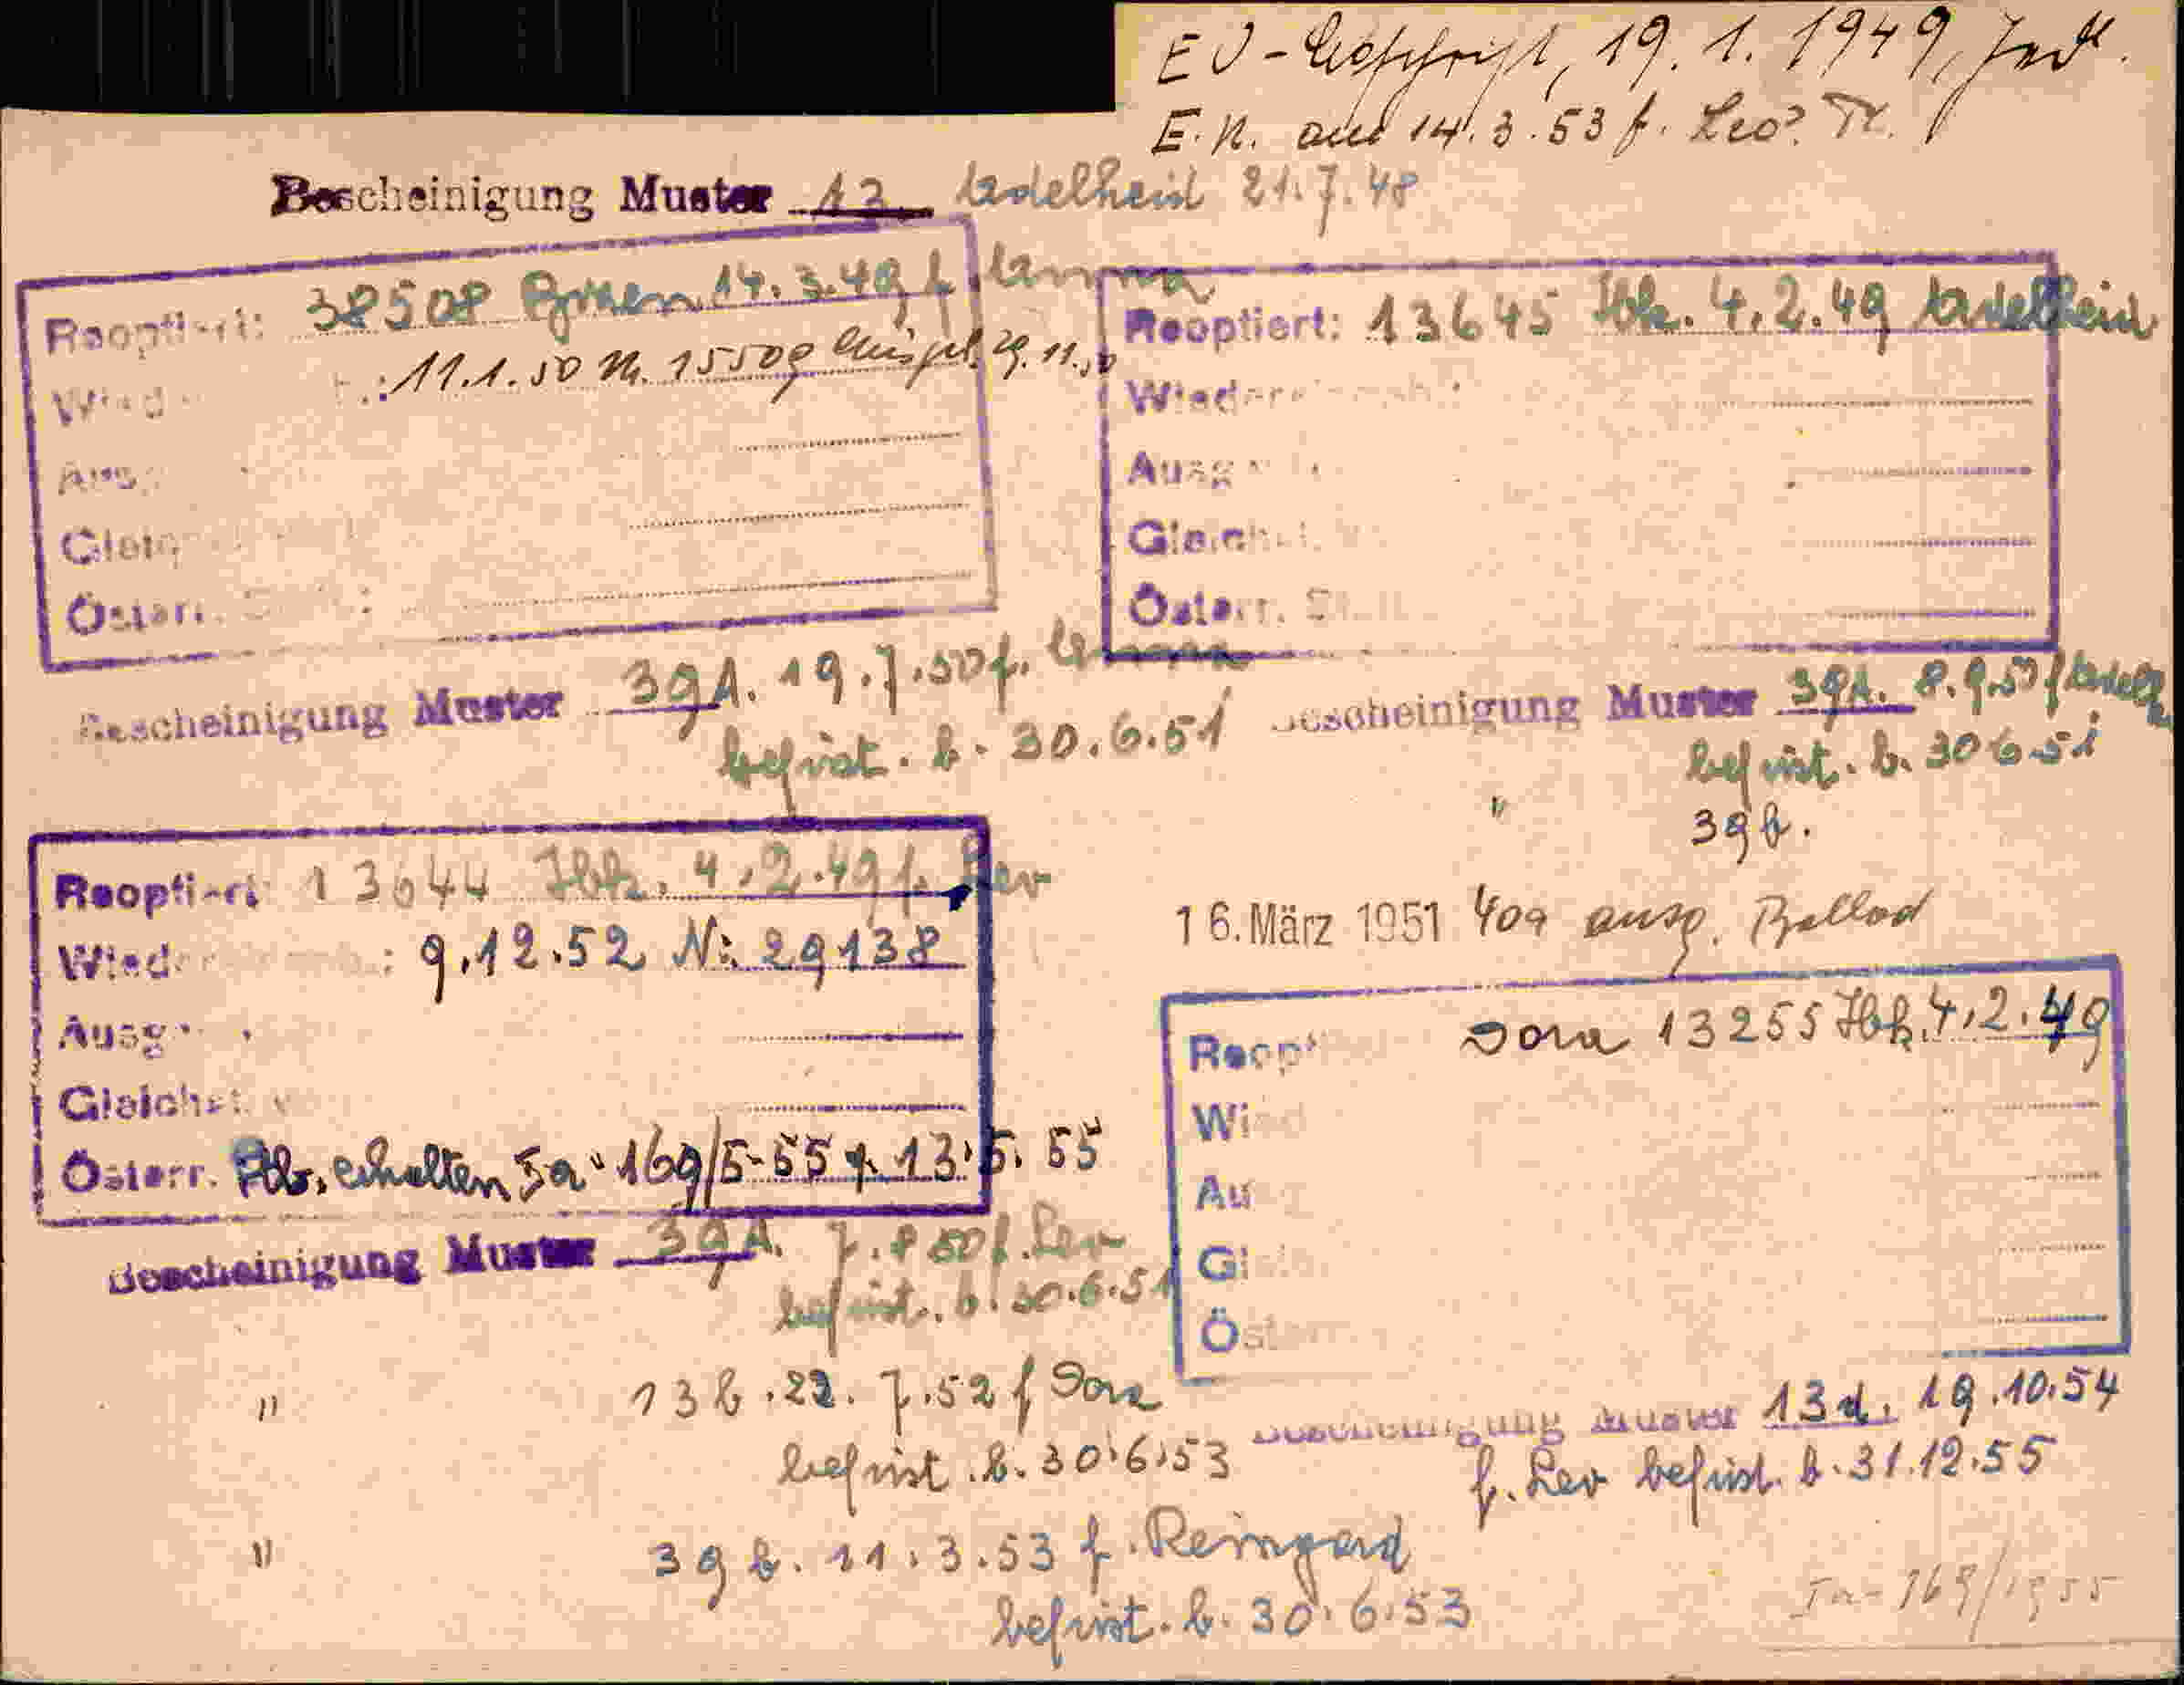 19. 1. 1949,
E. K. aus 14. 3. 53 f. Leo? Tr.
Bescheinigung Muster 13 Adelheid 21. 7. 48
Reoptiert: 38508 14. 3. 49 f. Anna
11. 1. 50 N. 15509 29. 11. 50
Wied
Ausg
Gleic
Österr.
Reoptiert: 13645 Ibk. 4. 2. 49 Adelheid
Wieder
Ausg
Gleich
Österr. St
Bescheinigung Muster 39A. 19. 7. 50 f. Anna
befrist. b. 30. 6. 51
Bescheinigung Muster 39A. 8. 9. 50 f Adelh
befrist. b. 30 6 51
" 39b.
Reoptiert 13644 Ibk. 4. 2. 49 f. Leo
Wied : 9. 12. 52 Nr. 29138
Ausg
Gleichst
Österr. Stb. erhalten Ia - 169/5-55 v. 13. 5. 55
16. März 1951 40a ausg.
Reopt Dora 13255 Ibk. 4. 2. 49
Wi
Au
Gl
Öster
Bescheinigung Muster 39A. 7. 8 50 f. Leo
befrist. b. 30. 6. 51
" 13b. 22. 7. 52 f Dora
befrist. b. 30. 6. 53
Bescheinigung Muster 13d. 19. 10. 54
f. Leo befrist. b. 31. 12. 55
" 39b. 11. 3. 53 f. Reingard
befrist. b. 30. 6. 53
Ia - 169/1955